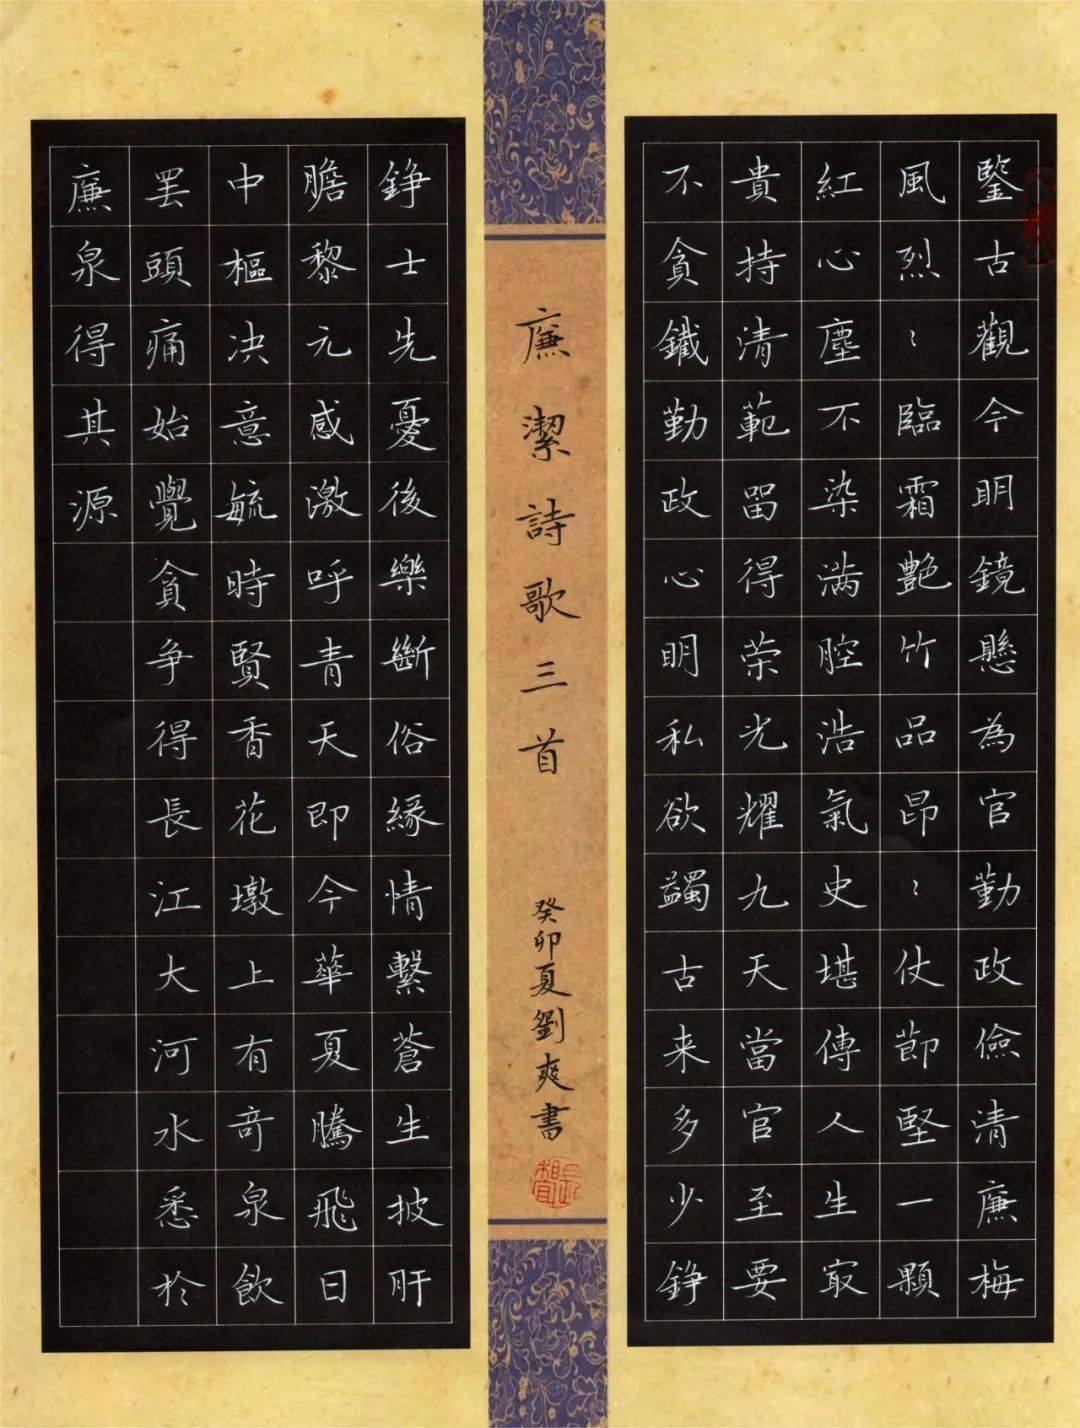 廉潔詩歌三首
鑒古觀今明鏡懸為官勤政儉清廉梅
風烈〻臨霜艷竹品昂〻仗節堅一顆
紅心塵不染滿腔浩氣史堪傳人生最
貴持清範留得榮光耀九天當官至要
不貪鐵勤政心明私欲蠲古来多少錚
錚士先憂後樂斷俗緣情繫蒼生披肝
膽黎元感激呼青天即今華夏騰飛日
中樞决意毓時賢香花墩上有奇泉飲
罢頭痛始覺貪争得長江大河水悉於
廉泉得其源
癸卯夏劉爽書